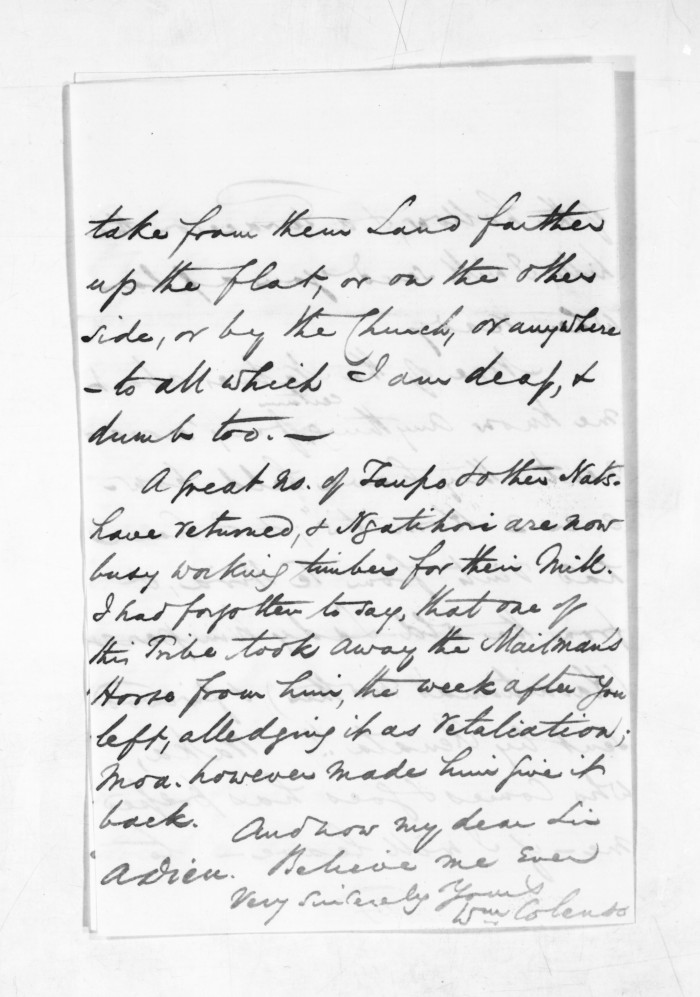 take from them Land farther
up the flat, or on the other
side, or by the Church, or anywhere
– to all which I am deaf, &
dumb too. —
A great no. of Taupo & other Nats.
have returned, & Ngatihori are now
busy working timbers for their Mill.
I had forgotten to say, that one of
this Tribe took away the Mailman's
Horse from him, the week after you
left, alledging it as retaliation;
Moa. however made him give it
back.
And now my dear Sir
Adieu. Believe me Ever
Very sincerely Yours
Wm Colenso